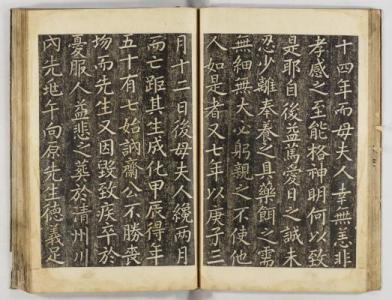 十四年而母夫人幸無恙非
孝感之至能格神明何以致
是耶自後益篤愛日之誠未
忍少離奉養之具藥餌之需
無細無大必躬親之不使他
人如是者又七年以庚子三
月十二日後母夫人纔兩月
而亡距其生成化甲辰得年
五十有七始訥齋公不勝喪
場而先生又因毀致疾卒於
憂服人益悲之葬於清州川
內先地午向原先生德義足